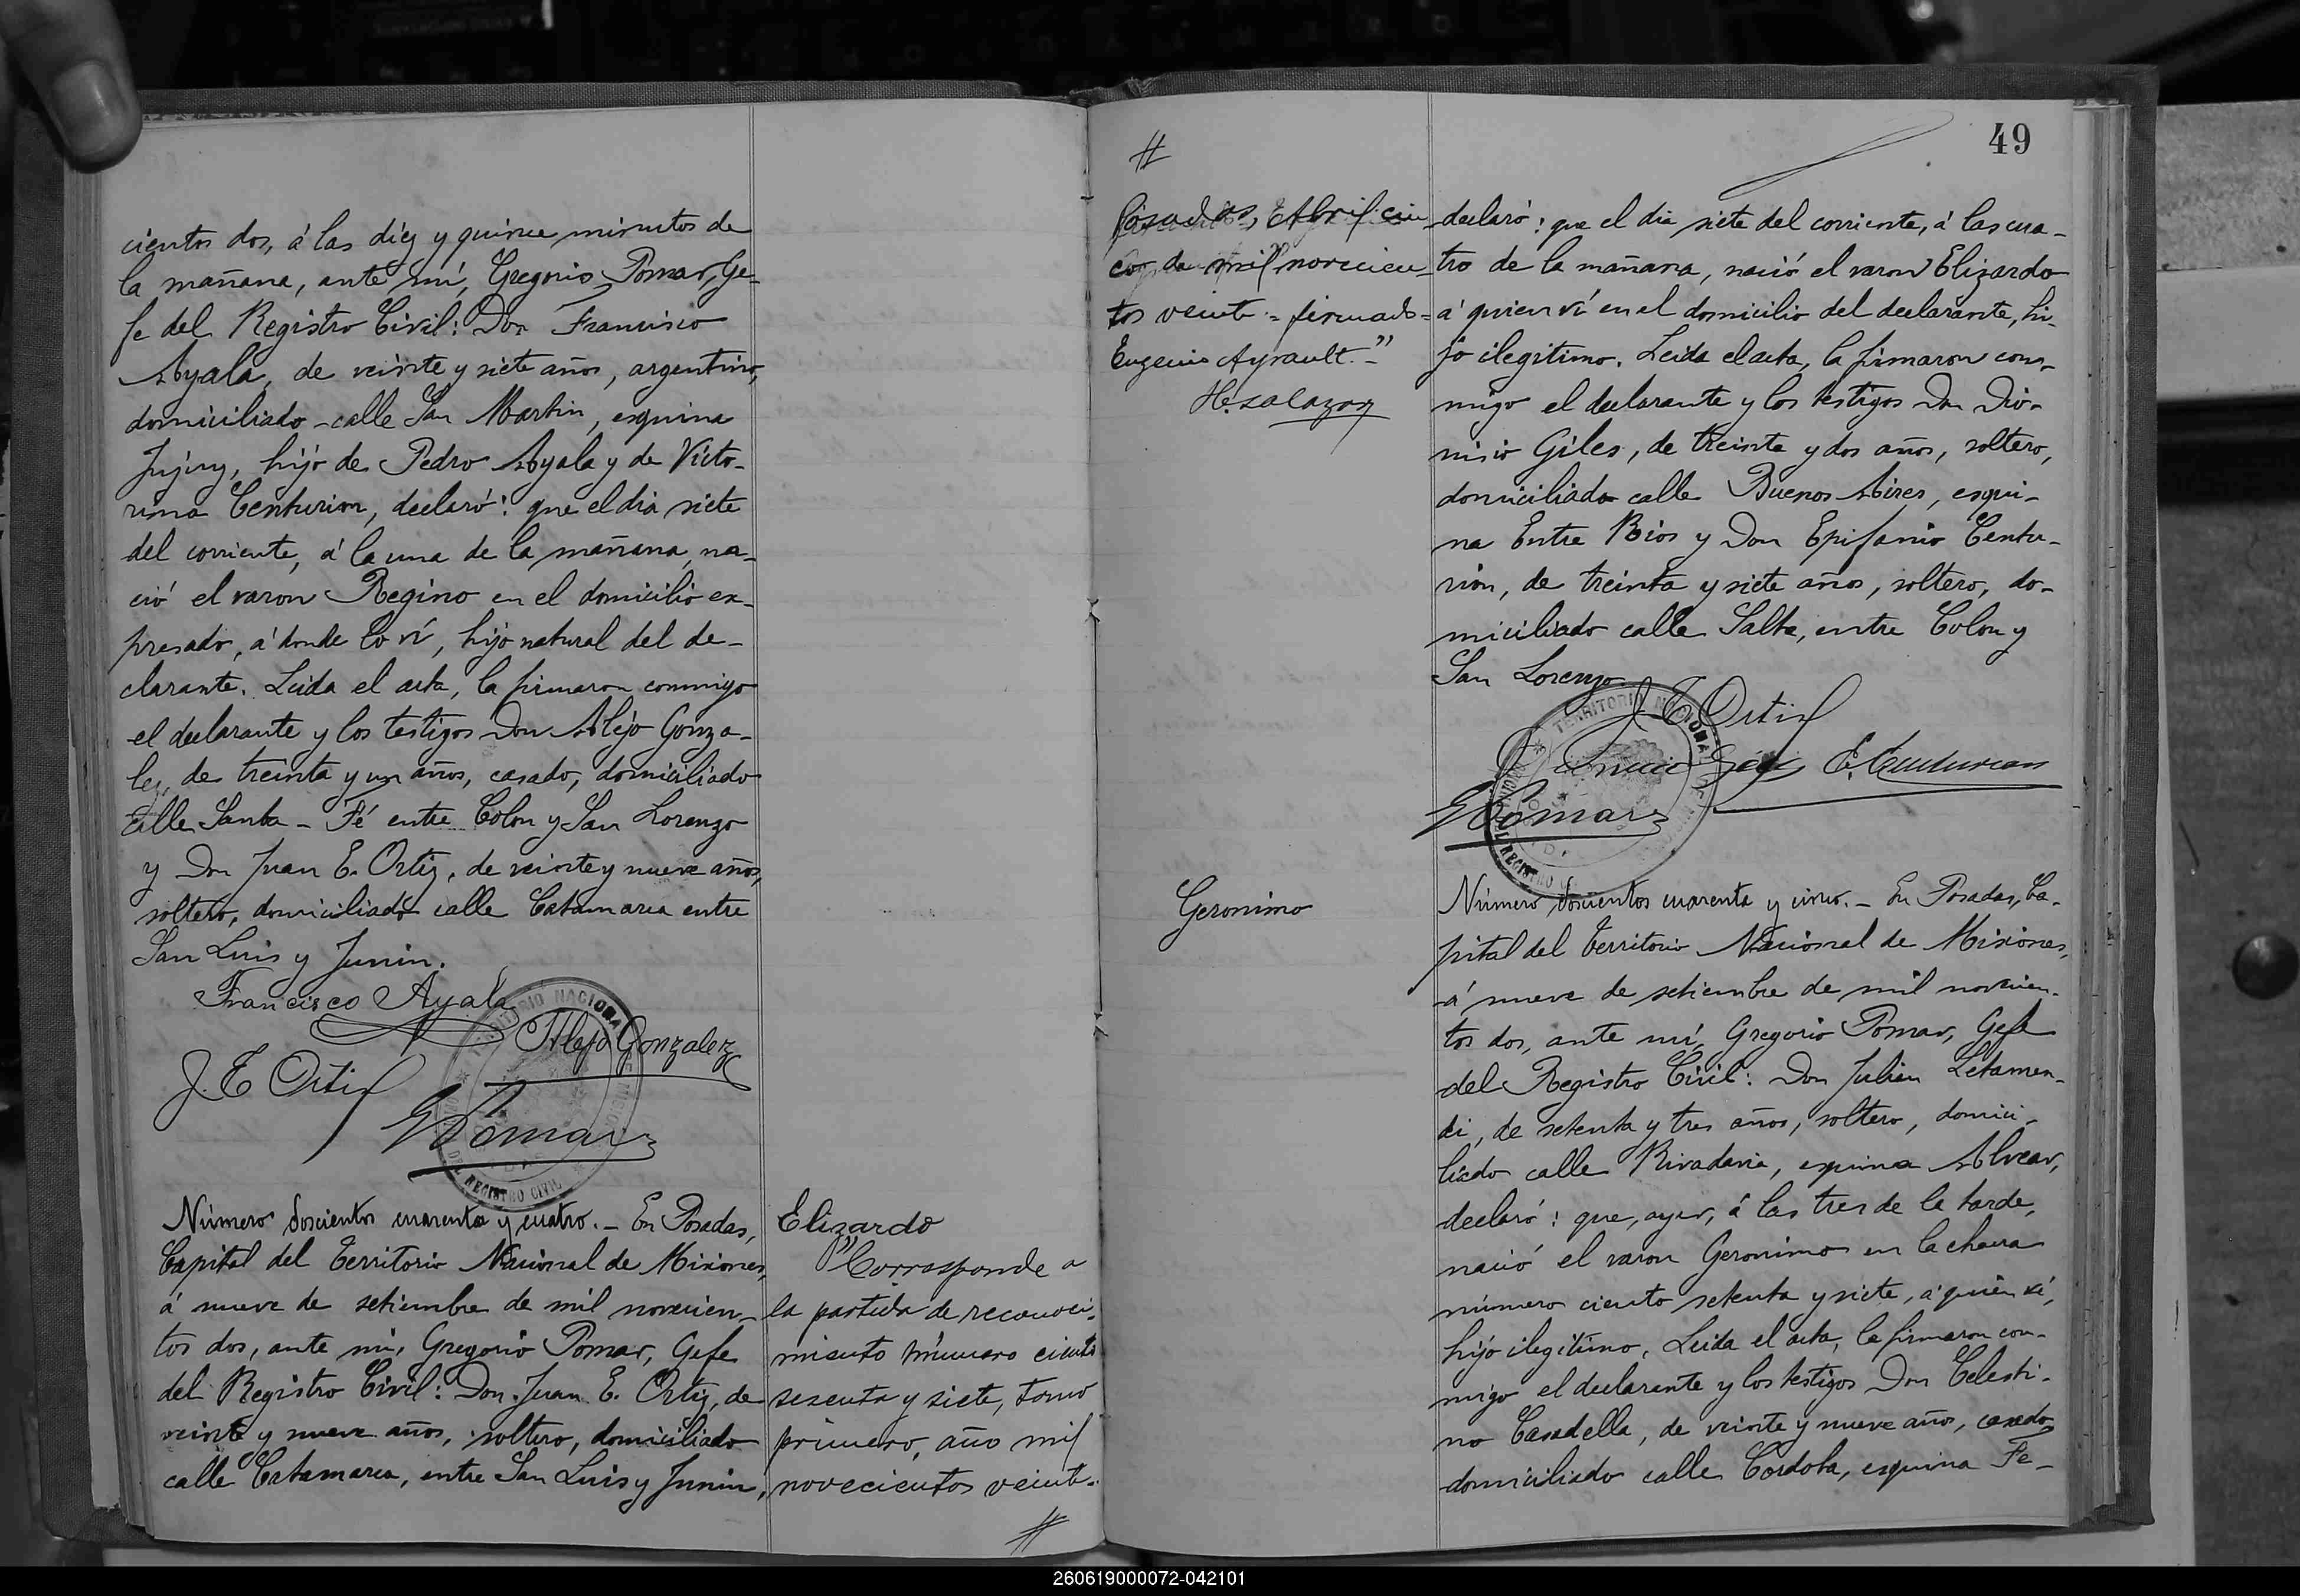 cientos dos, á las diez y quince minutos de
la mañana, ante mí, Gregorio Pomar, Ge-
fe del Registro Civil: Don Francisco
Ayala, de veinte y siete años, argentino,
domiciliado calle San Martin, esquina
Jujuy, hijo de Pedro Ayala y de Victo-
rina Centurion, declaró: que el dia siete
del corriente, á la una de la mañana, na-
ció el varon Regino en el domicilio ex-
presado, á donde lo ví, hijo natural del de-
clarante. Leida el acta, la firmaron conmigo
el declarante y los testigos Don Alejo Gonza-
lez, de treinta y un años, casado, domiciliado
calle Santa-Fé entre Colon y San Lorenzo
y Don Juan E. Ortiz, de veinte y nueve años,
soltero, domiciliado calle Catamarca entre
San Luis y Junin.
Francisco Ayala
Alejo Gonzalez
J. E Ortiz
G Pomar
TERRITORIO NACIONAL DE MISIONES
REGISTRO CIVIL
Número doscientos cuarenta y cuatro. - En Posadas,
Capital del Territorio Nacional de Misiones,
á nueve de setiembre de mil novecien-
tos dos, ante mí, Gregorio Pomar, Gefe
del Registro Civil: Don Juan E. Ortiz, de
veinte y nueve años, soltero, domiciliado
calle Catamarca, entre San Luis y Junin,
Elizardo
"Corresponde a
la partida de reconoci-
miento número ciento
sesenta y siete, tomo
primero, año mil
novecientos veinte.
#
#
Posadas, Abril cin-
co de mil novecien-
tos veinte = firmado =
Eugenio Ayrault."
H. Salazar
49
declaró: que el dia siete del corriente, á las cua-
tro de la mañana, nació el varon Elizardo
á quien ví en el domicilio del declarante, hi-
jo ilegitimo. Leida el acta, la firmaron con-
migo el declarante y los testigos Don Dio-
nisio Giles, de treinta y dos años, soltero,
domiciliado calle Buenos Aires, esqui-
na Entre Rios y Don Epifanio Centu-
rión, de treinta y siete años, soltero, do-
miciliado calle Salta, entre Colon y
San Lorenzo.
J. E Ortiz
E. Centurion
G Pomar
TERRITORIO NACIONAL
REGISTRO
Geronimo
Número doscientos cuarenta y cinco. - En Posadas, Ca-
pital del Territorio Nacional de Misiones,
á nueve de setiembre de mil novecien-
tos dos, ante mí, Gregorio Pomar, Gefe
del Registro Civil: Don Julian Letamen-
di, de setenta y tres años, soltero, domici-
liado calle Rivadavia, esquina Alvear,
declaró: que, ayer, á las tres de la tarde,
nació el varon Geronimo en la chacra
número ciento setenta y siete, á quien ví,
hijo ilegitimo. Leida el acta, la firmaron con-
migo el declarante y los testigos Don Celesti-
no Casadella, de veinte y nueve años, casado,
domiciliado calle Cordoba, esquina Fe-
260619000072-042101